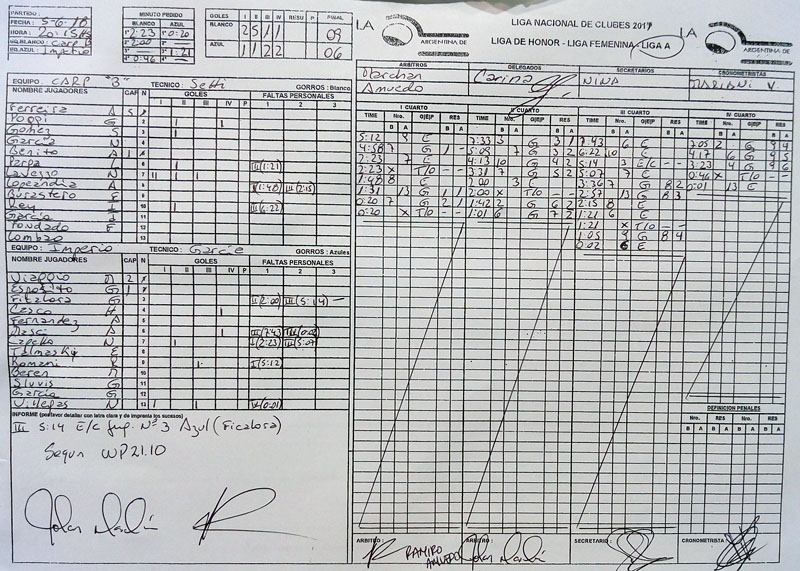 PARTIDO:
FECHA: 5-6-18
HORA: 20:15 HS
EQ.BLANCO: Carp B
EQ.AZUL: Imperio
MINUTO PEDIDO
BLANCO AZUL
1° 2:23 1° 0:20
2° 2:00 2°
3° 3° 1:21
4° 0:46 4°
GOLES I II III IV RESU P FINAL
BLANCO 2 5 1 1 09
AZUL 1 1 2 2 06
LA
ARGENTINA DE
LIGA NACIONAL DE CLUBES 2017
LIGA DE HONOR - LIGA FEMENINA - LIGA A
LA
ARGENTINA DE
EQUIPO: CARP "B" TECNICO: Setti GORROS: Blanco
NOMBRE JUGADORES CAP N GOLES FALTAS PERSONALES
I II III IV P 1 2 3
Ferreira A
Poppi G
Gomez S
Garcia N
Benito A
Parpa III(1:21)
Lavesso N
(1:48) III(2:15)
F
Rey III(6:22)
Garcia
Fondado F
Lombao
EQUIPO: Imperio TECNICO: Garcie GORROS: Azules
NOMBRE JUGADORES CAP N GOLES FALTAS PERSONALES
I II III IV P 1 2 3
Esposito G
Ficalosa G II(2:00) III(5:14) —
Casco H
Fernandez A
A III(7:43) III(0:02)
Capello N I(2:23) III(5:07)
Romani R I(5:12)
Beren
Sluvis G
Garcia G
Villegas N IV(0:01)
INFORME (por favor detallar con letra clara y de imprenta los sucesos)
III 5:14 E/c jug. Nº 3 Azul (Ficalosa)
Segun WP21.10
ARBITROS DELEGADOS SECRETARIOS CRONOMETRISTAS
Marchan Carina NINA MARIANI V.
Amuedo
I CUARTO II CUARTO III CUARTO IV CUARTO
TIME Nro. G/E/P RES TIME Nro. G/E/P RES TIME Nro. G/E/P RES TIME Nro. G/E/P RES
B A B A B A B A B A B A B A B A
5:12 9 E 7:33 3 G 3 1 7:43 6 E 7:05 2 G 9 4
4:58 7 G 1 - 5:09 7 G 4 1 6:22 10 E 4:17 6 G 9 5
2:23 7 E 4:13 10 G 4 2 5:14 3 E/C - - 3:23 4 G 9 6
2:23 X T/O - - 3:31 7 G 5 2 5:07 7 E 0:46 X T/O - -
1:48 8 E 2:00 3 E 3:36 7 G 8 2 0:01 13 E
1:31 13 G 1 1 2:00 X T/O - - 2:57 13 G 8 3
0:20 7 G 2 1 1:42 2 G 6 2 2:15 8 E
0:20 X T/O - - 1:01 6 G 7 2 1:21 6 E
1:21 X T/O - -
1:05 9 G 8 4
0:02 6 E
DEFINICION PENALES
Nro. RES Nro. RES
B A B A B A B A
ARBITRO RAMIRO AMUEDO ARBITRO: SECRETARIO: CRONOMETRISTA: